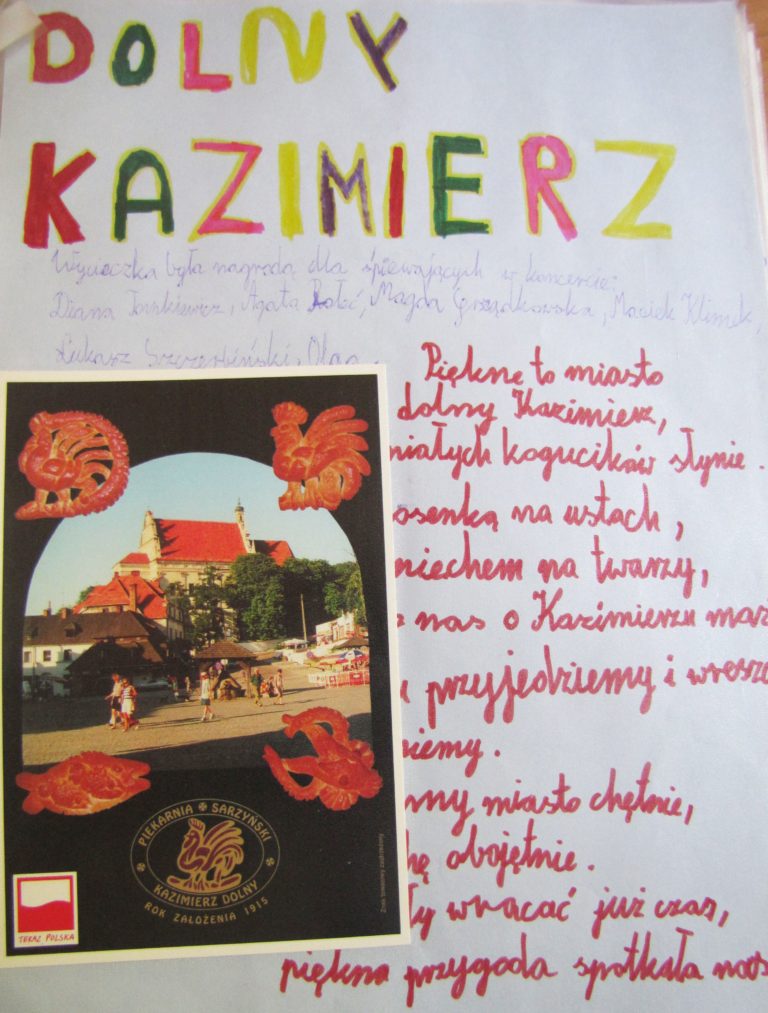 DOLNY
KAZIMIERZ
Wycieczka była nagrodą dla śpiewających w koncercie:
Diana Agata Magda Maciek Klimek,
Łukasz Szczerbiński, Olga
Piękne to miasto
dolny Kazimierz,
niałych kogucików słynie.
osenką na ustach,
niechem na twarzy,
nas o Kazimierzu marz
przyjedziemy i wresz
niemy.
my miasto chętnie,
hę obojętnie.
ły wracać już czas,
piękna przygoda spotkała nas
PIEKARNIA SARZYŃSKI
KAZIMIERZ DOLNY
ROK ZAŁOŻENIA 1915
Znak towarowy zastrzeżony
TERAZ POLSKA